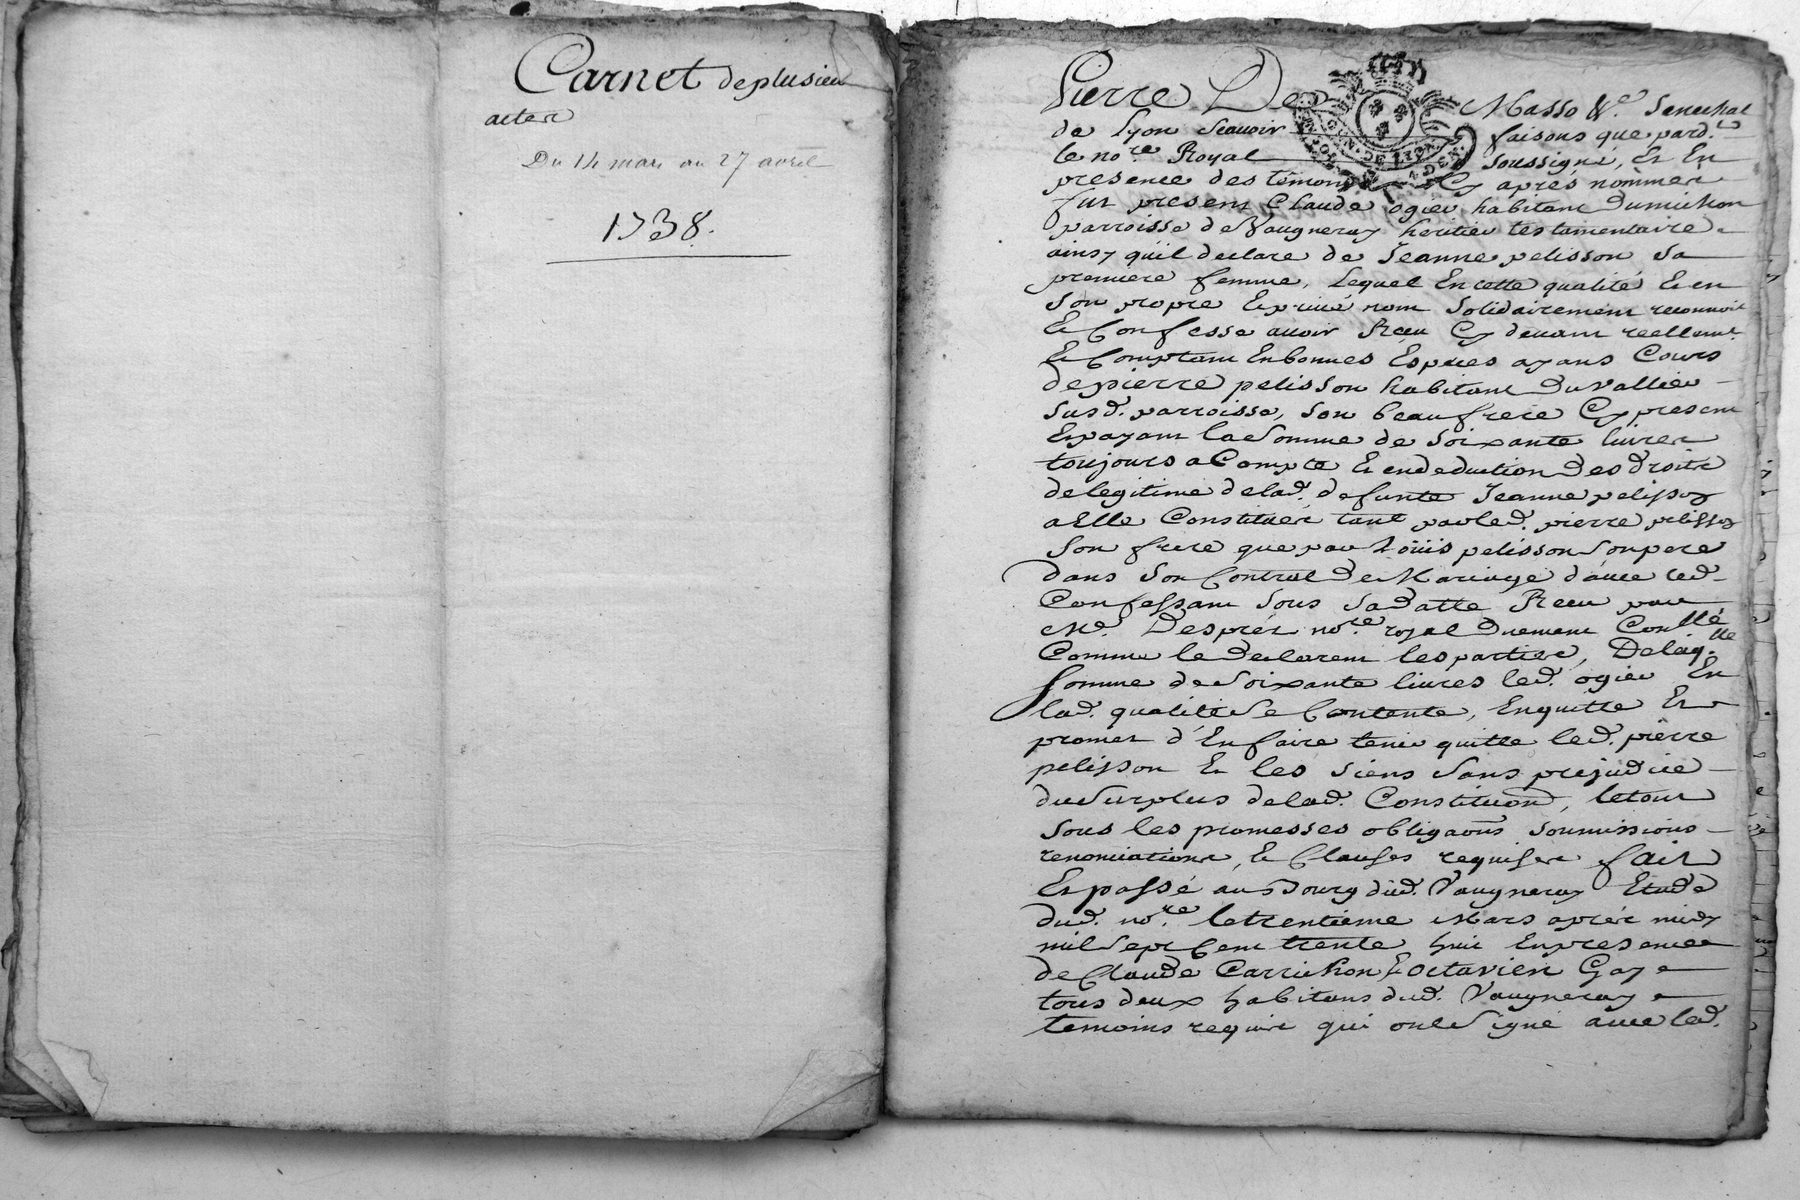 Carnet de plusieu
actes
Du 14 mars au 27 avril
1738.
Pierre De Masso &c. Senechal
de Lyon scavoir faisons que pard.
le nore Royal soussigné, Et En
presence des témoins Cy aprés nommes
fut present Claude ogier habitant Dumichon
parroisse de Vaugneray heritier testamentaire
ainsy qu'il declare de Jeanne pelisson Sa
premiere femme, Lequel En cette qualité Et en
Son propre Et privé nom Solidairement reconnoit
Et Confesse avoir Receu Cy devant reellemt.
Et Comptant En bonnes Especes ayans Cours
de pierre pelisson habitant Du vallier
susd. parroisse, Son beau frere Cy present
Et payant la Somme de Soixante livres
toujours a Compte Et en deduction Des Droits
de legitime de lad. defunte Jeanne pelisson
a Elle Constitués tant par led. pierre pelisson
Son frere que par Loüis pelisson Son pere
dans Son Contrat De Mariage d'avec led.
Confessant Sous Sa Datte Receu par
Me. Després nore. royal Duement Conllé
Comme le Declarent les parties, De laq.lle
Somme de Soixante livres led. ogier En
lad. qualité Se Contente, En quitte Et
promet d'En faire tenir quitte led. pierre
pelisson Et les Siens Sans prejudice
du Surplus de lad. Constitution, le tout
Sous les promesses obligaons Soumissions
renonciations, Et Clauses requises fait
Et passé au Bourg dud. Vaugneray Etude
dud. nore. le trentième Mars aprés midy
mil Sept Cent trente huit En presence
de Claude Carrichon Et octavien Gay
tous deux habitans dud. Vaugneray
temoins requis qui ont Signé avec led.